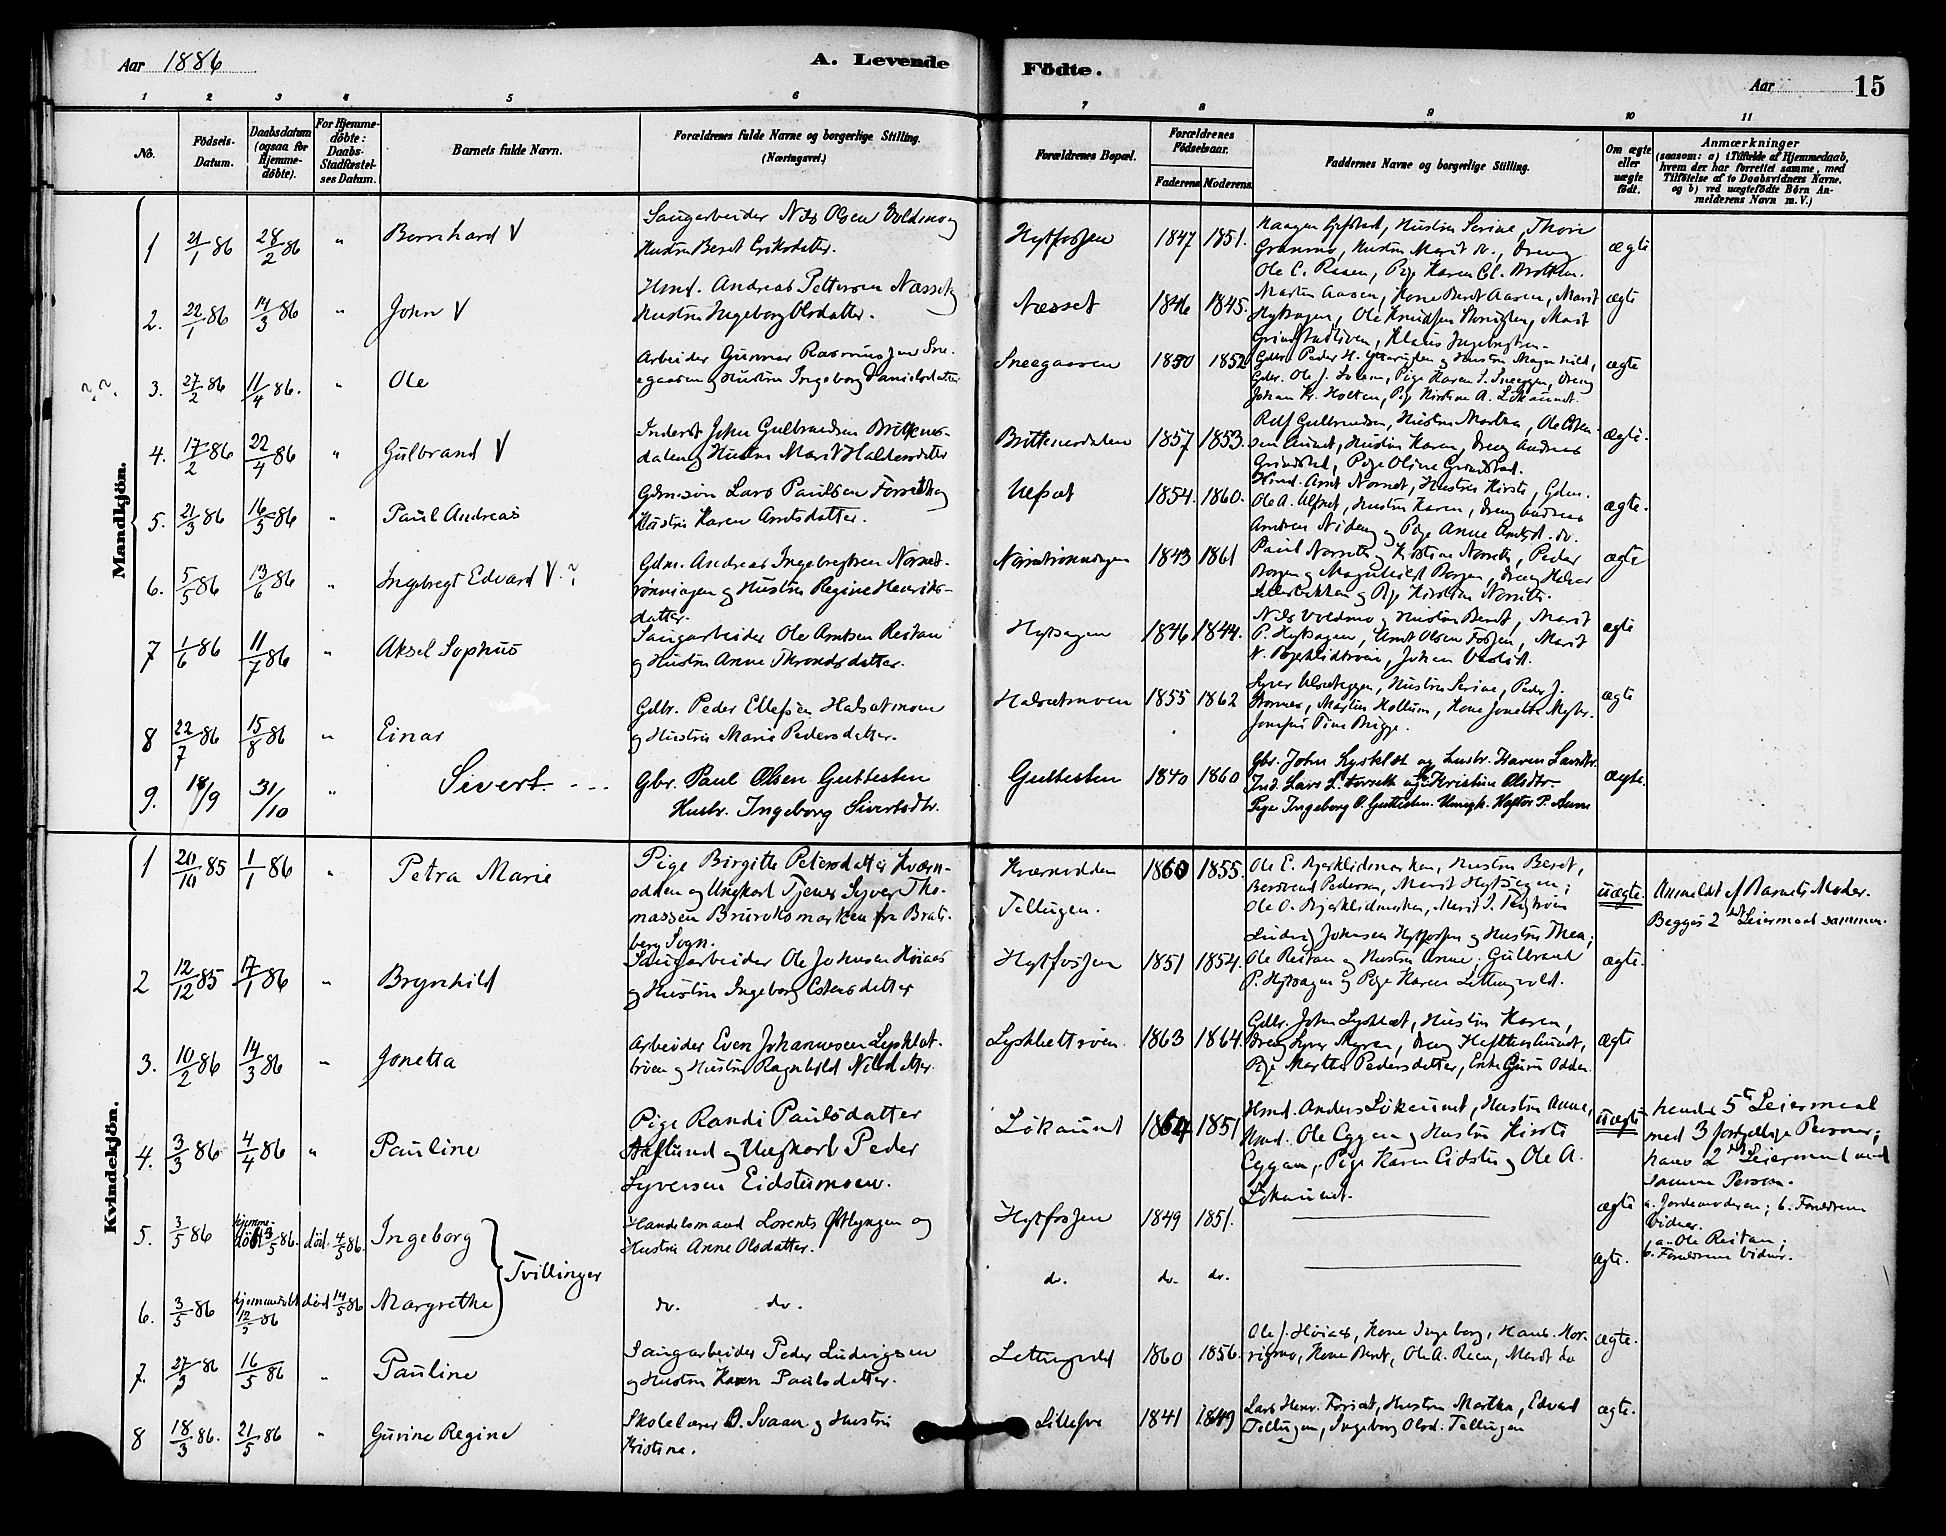 Aar 1886
A. Levende
Födte.
Aar
15
1 2 3 4 5 6 7 8 9 10 11
No.
Födsels-
Datum.
Daabsdatum
(ogsaa for
Hjemme-
döbte).
For Hjemme-
döbte:
Daabs-
Stadfæstel-
ses Datum.
Barnets fulde Navn.
Forældrenes fulde Navne og borgerlige Stilling.
(Næringsvei.)
Forældrenes Bopæl.
Forældrenes
Födselsaar.
Faderens. Moderens.
Faddernes Navne og borgerlige Stilling.
Om ægte
eller
uægte
födt.
Anmærkninger
(saasom: a) i Tilfælde af Hjemmedaab,
hvem der har forrettet samme, med
Tilföielse af to Daabsvidners Navne.
og b) ved uægtefödte Börn An-
melderens Navn m. V.)
Mandkjön.
1 21/1 86 28/2 86 " Bernhard V
Saugarbeider Nils Olsen Voldmo og
Hustru Beret Eriksdatter.
Hytfossen 1847 1851.
Haagen Hustru Serine, Thore
Granmo, Hustru Marit do., Dreng
Ole C. Reien, Pige Karen
ægte
2. 22/1 86 14/3 86 " John V
Hmd. Andreas Pettersen Næsset og
Hustru Ingeborg Olsdatter.
Næsset 1846 1845.
Morten Aasen, Kone Beret Aasen, Marit
Hytsagen, Ole Knudsen Marit
Klaus Ingebrigtsen
ægte
3. 27/2 86 11/4 86. " Ole
Arbeider Gunnar Rasmussen Sne-
egaasen og Hustru Ingeborg Danielsdatter
Sneegaasen 1850 1852
Gdbr. Peder H. og Hustru Magnhild,
Gdbr. Ole J. Solem, Pige Karen S. Sneeggen, Dreng
Johan Kr. Holten, Pige Kirstine A. Lökaunet.
ægte
4. 17/2 86 22/4 86 " Gulbrand V
Inderst John Gulbrandsen Brettems-
dalen og Hustru Marit Haldorsdatter
Brettemsdalen 1857 1853.
Rolf Gulbrandsen, Hustru Martha, Ole Olsen
Aunet, Hustru Karen, Dreng Andreas
Grindstad, Pige Oline Grindstad.
ægte.
5. 21/3 86 16/5 86 " Paul Andreas
Gdm.sön Lars Paulsen Forseth og
Hustru Karen Arntsdatter.
Ulfsæt 1854. 1860.
Hmd. Arnt Norset, Hustru Kirsti, Gdm.
Ole A. Ulfset, Hustru Karen, Dreng Andreas
Arntsen og Pige Anne Arntsd. do.
ægte.
6. 5/5 86 13/6 86 " Ingebrigt Edvard V.?
Gdm. Andreas Ingebrigtsen Norset-
rönningen og Hustru Regine Henriks-
datter.
Norsetrönningen 1843 1861
Paul Norseth og Kirstine Norseth, Peder
Borgen og Magnhild Borgen, Dreng Halvor
og Pige Kirstine Norseth.
ægte
7 1/6 86 11/7 86 " Aksel Sophus
Saugarbeider Ole Arntsen Reitan
og Hustru Anne Throndsdatter.
Hytsagen 1846 1844.
Nils Voldmo og Hustru Beret, Marit
P. Hytsagen, Arnt Olsen Fossen, Marit
N. Johan
ægte
8 22/7 86 15/8 86 " Einar
Gdbr. Peder Ellefsen Halsetmoen
og Hustru Marie Pedersdatter.
Halsetmoen 1855 1862
Syver Ulseteggen, Hustru Serine, Peder J.
Stormes, Martin Hollum, Kone Jonetta
Jomfru Tine Brigge.
ægte
9. 18/9 31/10 " Sivert
Gbr. Paul Olsen Guttesten
Hustr. Ingeborg Sivertsdtr.
Guttesten 1840 1860
Gbr. John Lysklæt og Hustr. Karen Larsdtr.
Ind. Lars L. Forseth og Kristine Olsdtr.
Pige Ingeborg P. Guttesten. Ungk. Hagtor P. Aune
ægte.
Kvindekjön.
1 20/10 85 1/1 86 " Petra Marie
Pige Birgitte Petersdatter Kværn-
odden og Ungkarl Tjener Syver Tho-
massen Bruröksmarken fra Brats-
berg Sogn.
Kværnodden
Tellugen. 1860 1855.
Ole E. Bjerklidmarken, Hustru Beret,
Berdvend Pedersen, Marit Hytsagen;
Ole O. Bjerklidmarken, Marit
uægte.
Anmeldt af Barnets Moder.
Begges 2det Leiermaal sammen.
2 12/12 85 17/1 86 " Brynhild
Saugarbeider Ole Johnsen Höiaas
og Hustru Ingeborg Estensdatter
Hytfossen 1851 1854.
Ludvig Johnsen Hytfossen og Hustru Thea;
Ole Reitan og Hustru Anne; Gulbrand
P. Hytsagen og Pige Karen Lettingvold.
ægte.
3. 10/2 86 14/3 86 " Jonetta
Arbeider Even Johannesen Lysklet-
tröen og Hustru Ragnhild Nilsdatter.
Lysklettröen 1863 1864.
Gdbr. John Lysklæt, Hustru Karen,
Dreng Syver Myren, Dreng
Pige Martha Pedersdatter, Enke Guru Odden
ægte
4. 3/3 86 4/4 86 " Pauline
Pige Randi Paulsdatter
Asklund og Ungkarl Peder
Syversen Eidstumoen.
Lökaunet 1864 1851
Hmd. Anders Lökaunet, Hustru Anne,
Hmd. Ole Eggen og Hustru Kirsti
Eggen, Pige Karen Eidstu og Ole A.
Lökaunet.
uægte
hendes 5te Leiermaal
med 3 forskjellige Personer;
hans 2det Leiermaal med
samme Person.
5. 3/5 86 hjemme-
döbt 3/5 86. död 4/5 86. Ingeborg
Handelsmand Lorents Östlyngen og
Hustru Anne Olsdatter.
Hytfossen 1849 1851.
ægte
a. Jordemoderen; b. Forældrene
Vidner.
Tvillinger
6. 3/5 86 hjemmedöbt 12/5 86 död 14/5 86 Margrethe
do. do.
do. do. do.
ægte.
a. Ole Reitan;
b. Forældrene Vidner.
7. 27/3 86 16/5 86 " Pauline
Saugarbeider Peder Ludvigsen
og Hustru Karen Paulsdatter.
Lettingvold 1860 1856.
Ole J. Höiaas, Kone Ingeborg, Hans Mor-
rismo, Kone Beret, Ole A. Reen, Marit do
ægte.
8 18/3 86. 21/5 86 " Gurine Regine
Skolelærer O. Svaan og Hustru
Kristine.
Lillefre 1841 1849
Lars Henr. Forset, Hustru Martha, Edvard
Tellugen, Ingeborg Olsd. Tellugen
ægte.